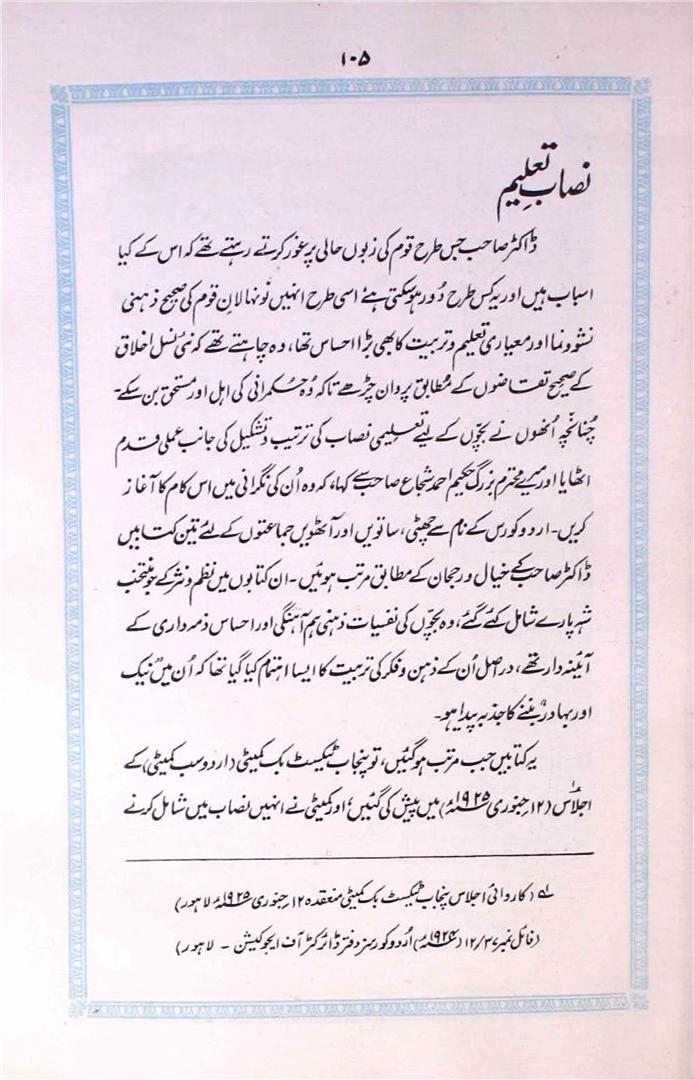 ۱۰۵
نصابِ تعلیم
ڈاکٹر صاحب جس طرح قوم کی زبوں حالی پر غور کرتے رہتے تھے کہ اس کے کیا
اسباب ہیں اور یہ کس طرح دُور ہوسکتی ہے اسی طرح انہیں نونہالانِ قوم کی صحیح ذہنی
نشوونما اور معیاری تعلیم و تربیت کا بھی بڑا احساس تھا، وہ چاہتے تھے کہ نئی نسل اخلاق
کے صحیح تقاضوں کے مُطابق پروان چڑھے تاکہ وُہ حکمرانی کی اہل اور مستحق بن سکے۔
چُنانچہ اُنھوں نے بچّوں کے لیئے تعلیمی نصاب کی ترتیب و تشکیل کی جانب عملی قدم
اٹھایا اور میرے محترم بزرگ حکیم احمد شجاع صاحب سے کہا، کہ وہ اُن کی نگرانی میں اس کام کا آغاز
کریں۔ اردو کورس کے نام سے چھٹی، ساتویں اور آٹھویں جماعتوں کے لئے تین کتابیں
ڈاکٹر صاحب کے خیال و رجحان کے مطابق مرتب ہوئیں۔ ان کتابوں میں نظم و نثر کے جو منتخب
شہ پارے شامل کئے گئے، وہ بچّوں کی نفسیات ذہنی ہم آہنگی اور احساس ذمہ داری کے
آئینہ دار تھے، دراصل اُن کے ذہن و فکر کی تربیت کا ایسا اہتمام کیا گیا تھا کہ اُن میں نیک
اور بہادر بننے کا جذبہ پیدا ہو۔
یہ کتابیں جب مرتب ہوگئیں، تو پنجاب ٹیکسٹ بک کمیٹی (اردو سب کمیٹی) کے
اجلاس (۱۲ جنوری ۱۹۲۵ء) میں پیش کی گئیں اور کمیٹی نے انہیں نصاب میں شامل کرنے
لے (کاروائی اجلاس پنجاب ٹیکسٹ بک کمیٹی منعقدہ ۱۲ جنوری ۱۹۲۵ء لاہور)
(فائل نمبر ۱۲/۳۷ (۱۹۲۴ء) اُردو کورسز دفتر ڈائرکٹر آف ایجوکیشن ۔ لاہور)